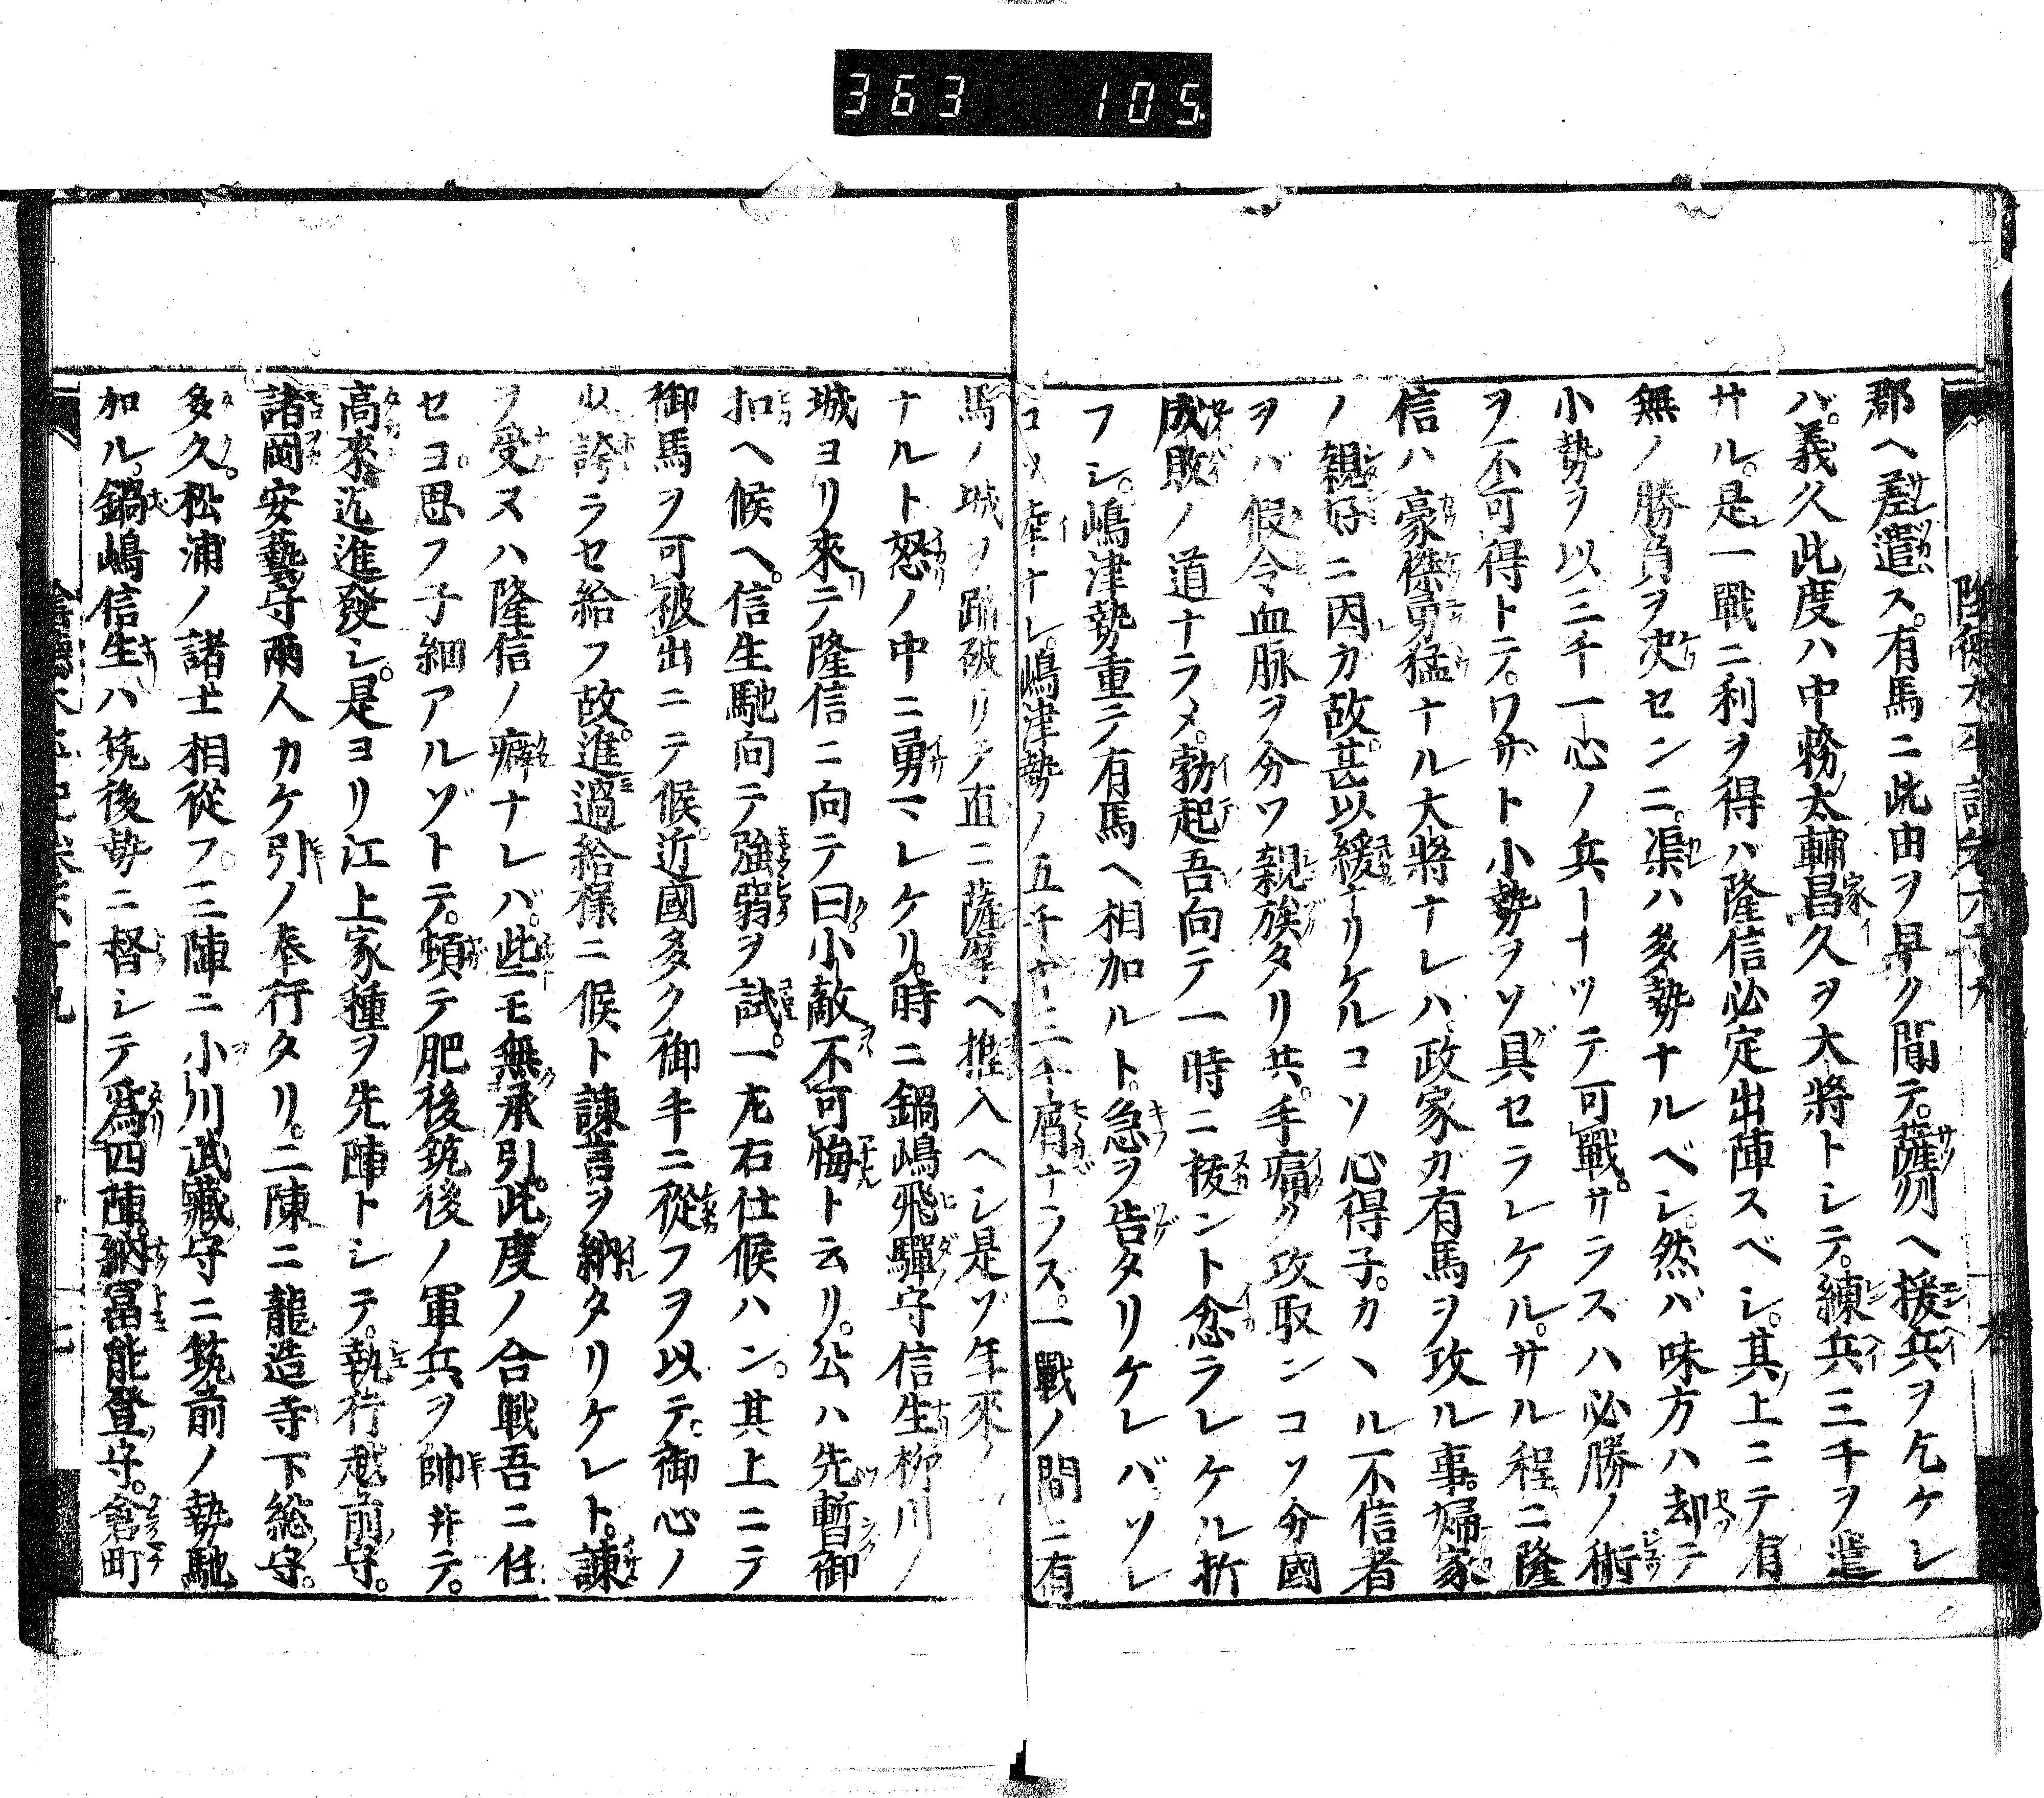 363 105
郡ヘ差遣ス。有馬ニ此由ヲ早ク聞テ。薩刕ヘ援兵ヲ乞ケレ
バ。義久此度ハ中務太輔家久ヲ大將トシテ。練兵三千ヲ遣
サル。是一戰ニ利ヲ得ハ隆信必定出陣スベシ。其上ニテ有
無ノ勝負ヲ决センニ。渠ハ多勢ナルベシ。然バ味方ハ却テ
小勢ヲ以三千一心ノ兵ーナツテ可戰。サラズハ必勝ノ術
ヲ不可得トテ。ワザト小勢ヲソ具セラレケル。サル程ニ隆
信ハ豪傑勇猛ナル大將ナレハ。政家ガ有馬ヲ攻ル事。婦家
ノ親好ニ因ガ故。甚以緩ナリケルコソ心得子。カヽル不信者
ヲバ假令血脉ヲ分ツ親族タリ共。手痛ク攻取ンコソ分國
成敗ノ道ナラメ。勃起吾向テ一時ニ拔ント忿ラレケル折
フシ。嶋津勢重テ有馬ヘ相加ルト。急ヲ告タリケレバ。ソレ
コソ幸ナレ。嶋津勢ノ五千ヤ三千屑ナラズ。一戰ノ間ニ有
馬ノ城ヲ蹈破リテ直ニ薩摩ヘ推入ヘシ是ゾ年來ノ
ナルト怒ノ中ニ勇マレケリ。時ニ鍋嶋飛驒守信生柳川ノ
城ヨリ來テ隆信ニ向テ曰。小敵不可侮ト云リ。公ハ先暫御
扣ヘ候ヘ。信生馳向テ強弱ヲ試。一左右仕候ハン。其上ニテ
御馬ヲ可被出ニテ候。近國多ク御手ニ從フヲ以テ。御心ノ
ミ誇ラセ給フ故。進過給樣ニ候ト諫言ヲ納タリケレト。諫
ヲ受ヌハ隆信ノ癖ナレバ。些モ無承引。此度ノ合戰吾ニ任
セヨ。思フ子細アルゾトテ。頓テ肥後筑後ノ軍兵ヲ帥井テ。
高來迄進發シ。是ヨリ江上家種ヲ先陣トシテ。執行越前守。
諸岡安藝守兩人カケ引ノ奉行タリ。二陳ニ龍造寺下總守。
多久。松浦ノ諸士相從フ。三陣ニ小川武藏守ニ筑前ノ勢馳
加ル。鍋嶋信生ハ筑後勢ニ督シテ爲四陣。納冨能登守。倉町